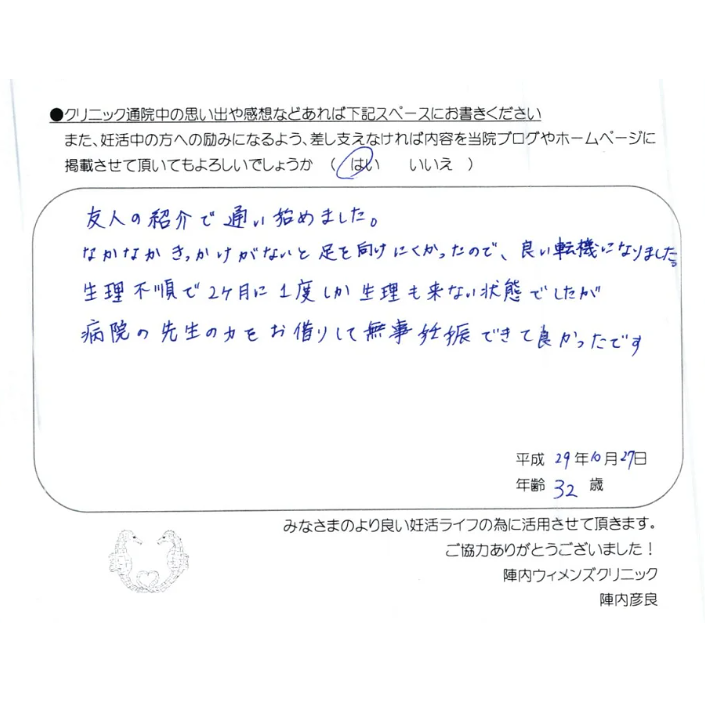 ●クリニック通院中の思い出や感想などあれば下記スペースにお書きください
また、妊活中の方への励みになるよう、差し支えなければ内容を当院ブログやホームページに
掲載させて頂いてもよろしいでしょうか （ はい いいえ ）
友人の紹介で通い始めました。
なかなかきっかけがないと足を向けにくかったので、良い転機になりました。
生理不順で2ヶ月に1度しか生理も来ない状態でしたが
病院の先生の力をお借りして無事妊娠できて良かったです
平成 29年10月27日
年齢 32 歳
みなさまのより良い妊活ライフの為に活用させて頂きます。
ご協力ありがとうございました！
陣内ウィメンズクリニック
陣内彦良